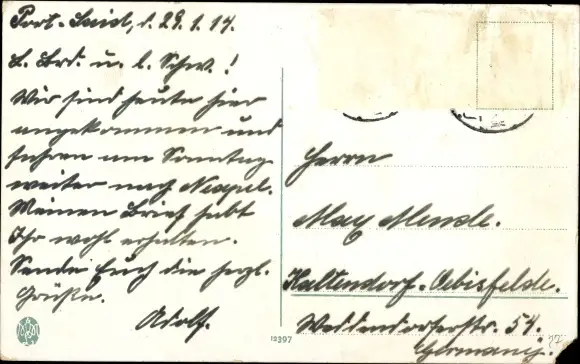 Port-Said, d. 29.1.14.
L. Brd. u. l. Schw.!
Wir sind heute hier
angekommen und
fahren am Sonntag
weiter nach Neapel.
Meinen Brief habt
Ihr wohl erhalten.
Sende Euch die herzl.
Grüße.
Adolf.
12397
Herrn
Max Mende.
Kaltendorf-Oebisfelde.
Weddendorferstr. 54.
Germany.